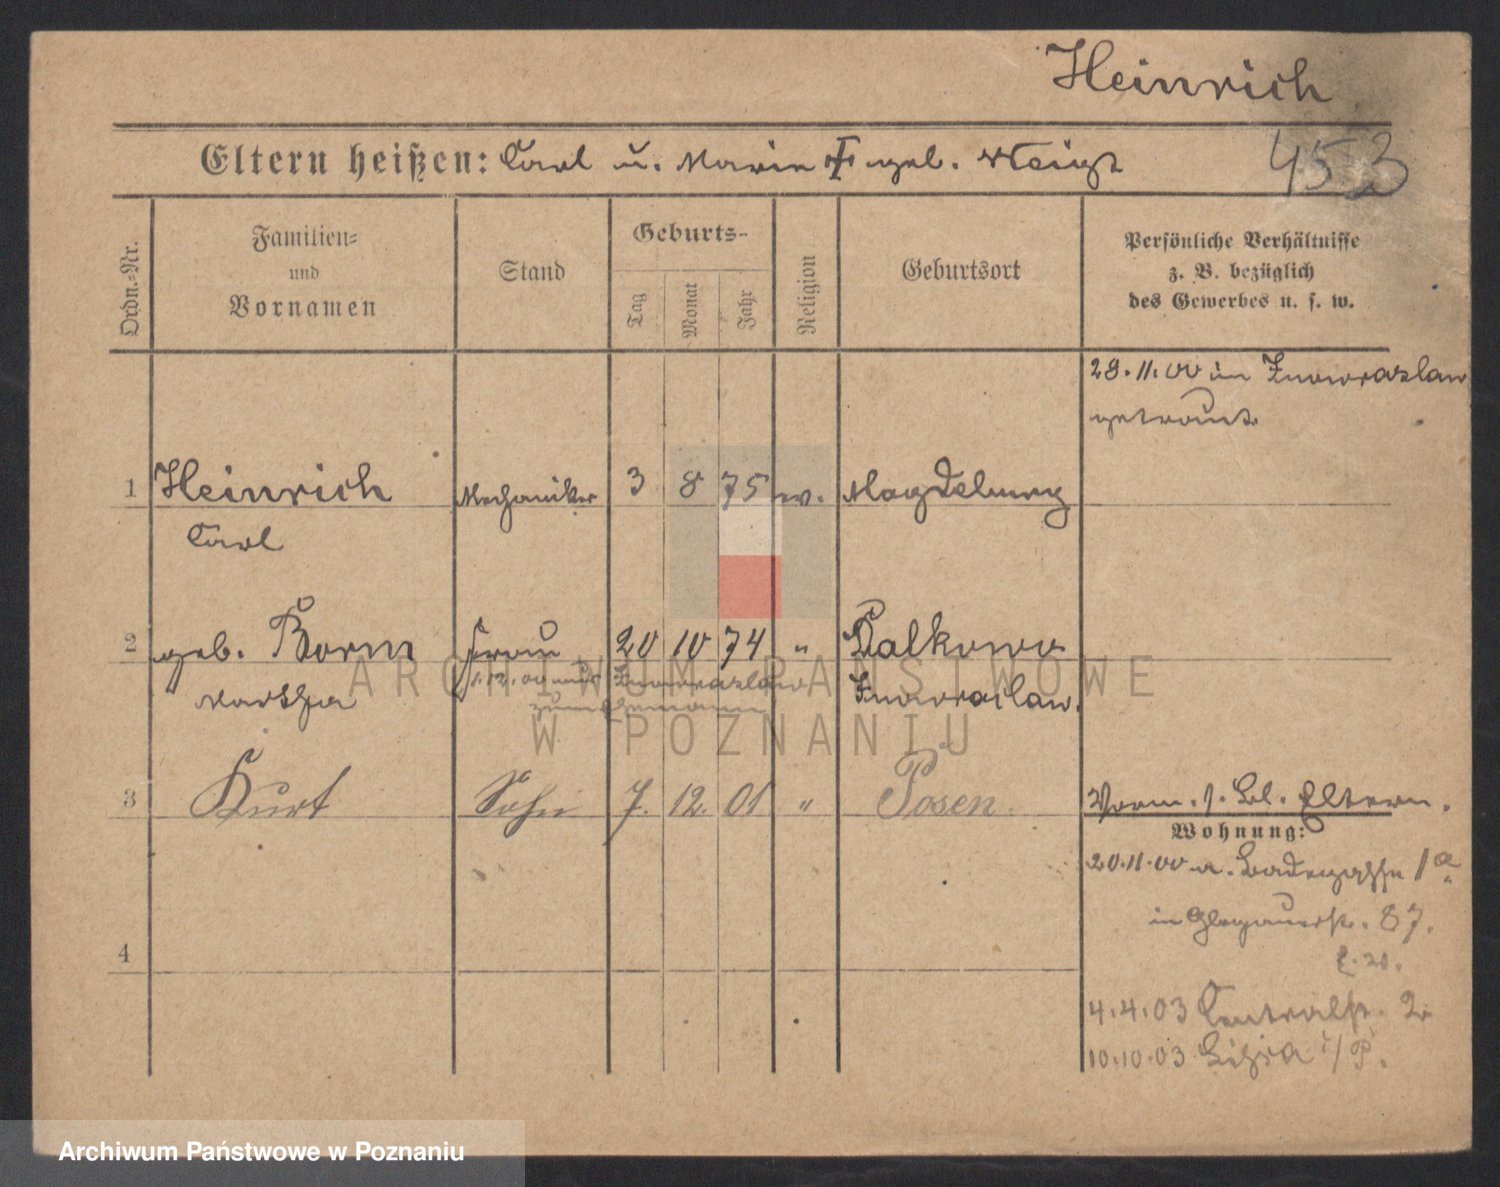 Heinrich
Eltern heißen: Carl u. Marie geb. Weigt
453
Ordn.=Nr.
Familien=
und
Vornamen
Stand
Geburts-
Tag
Monat
Jahr
Religion
Geburtsort
Persönliche Verhältnisse
z. B. bezüglich
des Gewerbes u. s. w.
28.11.00 in Inowrazlaw
getraut.
1 Heinrich Mechaniker 3 8 75 ev. Magdeburg
Carl
2 geb. Borm Frau 20 10 74 " Balkowo
Martha 1.12.00 aus Inowrazlaw Inowrazlaw.
zum Ehemann
3 Kurt Sohn 7. 12. 01 " Posen
Vorm. s. Bl. Eltern.
Wohnung:
20.11.00 a. Badegasse 1a
in Glogauerstr. 87.
4
4.4.03 Centralstr. 2
10.10.03 Lissa i/P.
ARCHIWUM PAŃSTWOWE
W POZNANIU
Archiwum Państwowe w Poznaniu